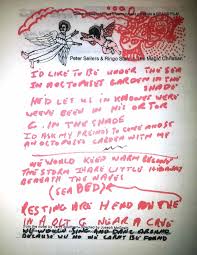 Peter Sellers & Ringo Starr in The Magic Christian
I'D LIKE TO BE UNDER THE SEA
IN AN OCTOPUSES GARDEN IN THE
SHADE
HE'D LET US IN KNOWES WERE
WEVE BEEN IN HIS OR TOR
G. IN THE SHADE
I'D ASK MY FREINDS TO COME AND SE
AN OCTOPUSES GARDEN WITH ME
WE WOULD KEEP WARM BELOW
THE STORM IN ARE LITTLE HIDAWAY
BENEATH THE WAVES
(SEA BED)R
RESTING ARE HEAD ON THE
IN A OCT G NEAR A CAVE
WE WOULD SING AND DANC AROUND
BECAUSE WE NO WE CANT BE FOUND